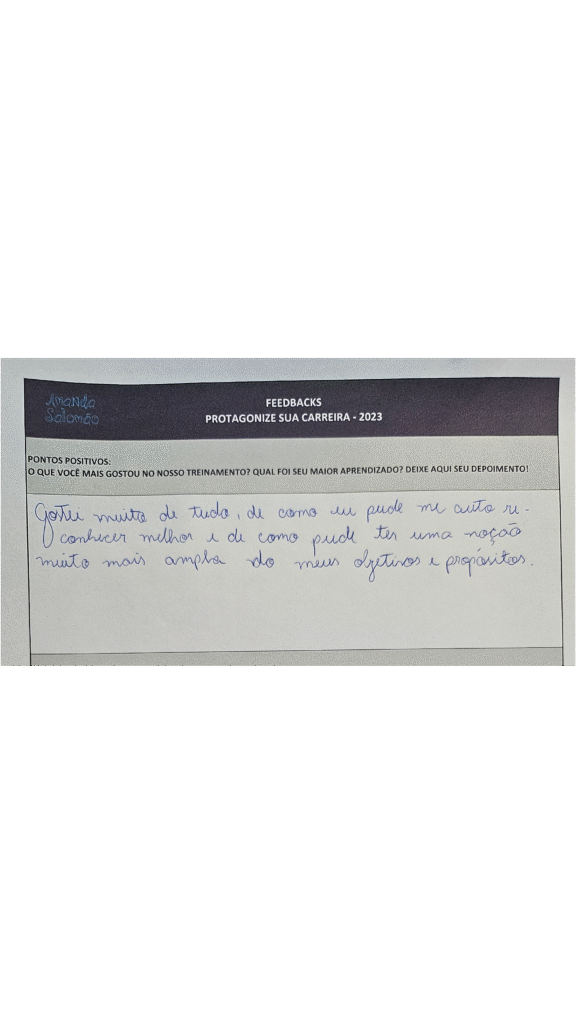 Amanda
Salomão
FEEDBACKS
PROTAGONIZE SUA CARREIRA - 2023
PONTOS POSITIVOS:
O QUE VOCÊ MAIS GOSTOU NO NOSSO TREINAMENTO? QUAL FOI SEU MAIOR APRENDIZADO? DEIXE AQUI SEU DEPOIMENTO!
Gostei muito de tudo, de como eu pude me auto re-
conhecer melhor e de como pude ter uma noção
muito mais ampla do meus objetivos e propósitos.